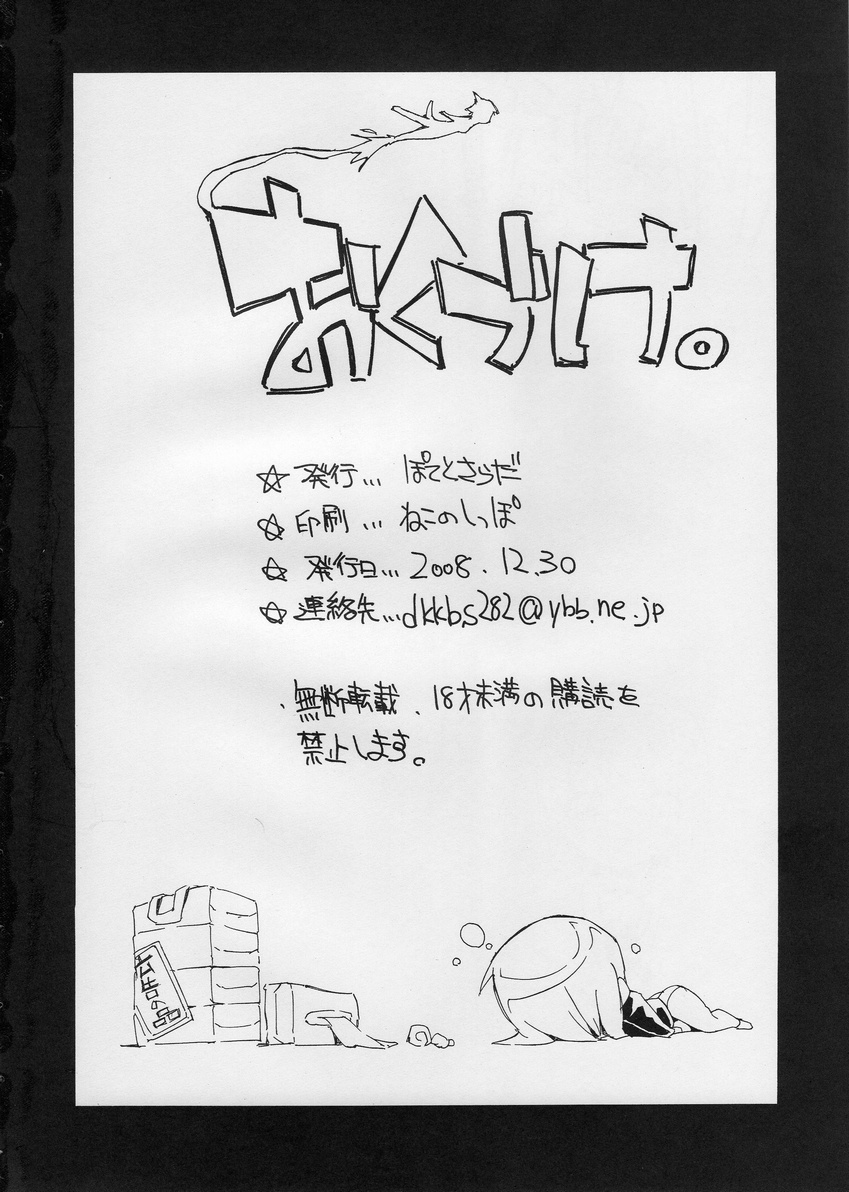 おくづけ。
☆ 発行... ぽてとさらだ
☆ 印刷 ... ねこのしっぽ
☆ 発行日... 2008.12.30
☆ 連絡先...dkkbs282@ybb.ne.jp
・無断転載、18才未満の購読を
禁止します。
広告の品